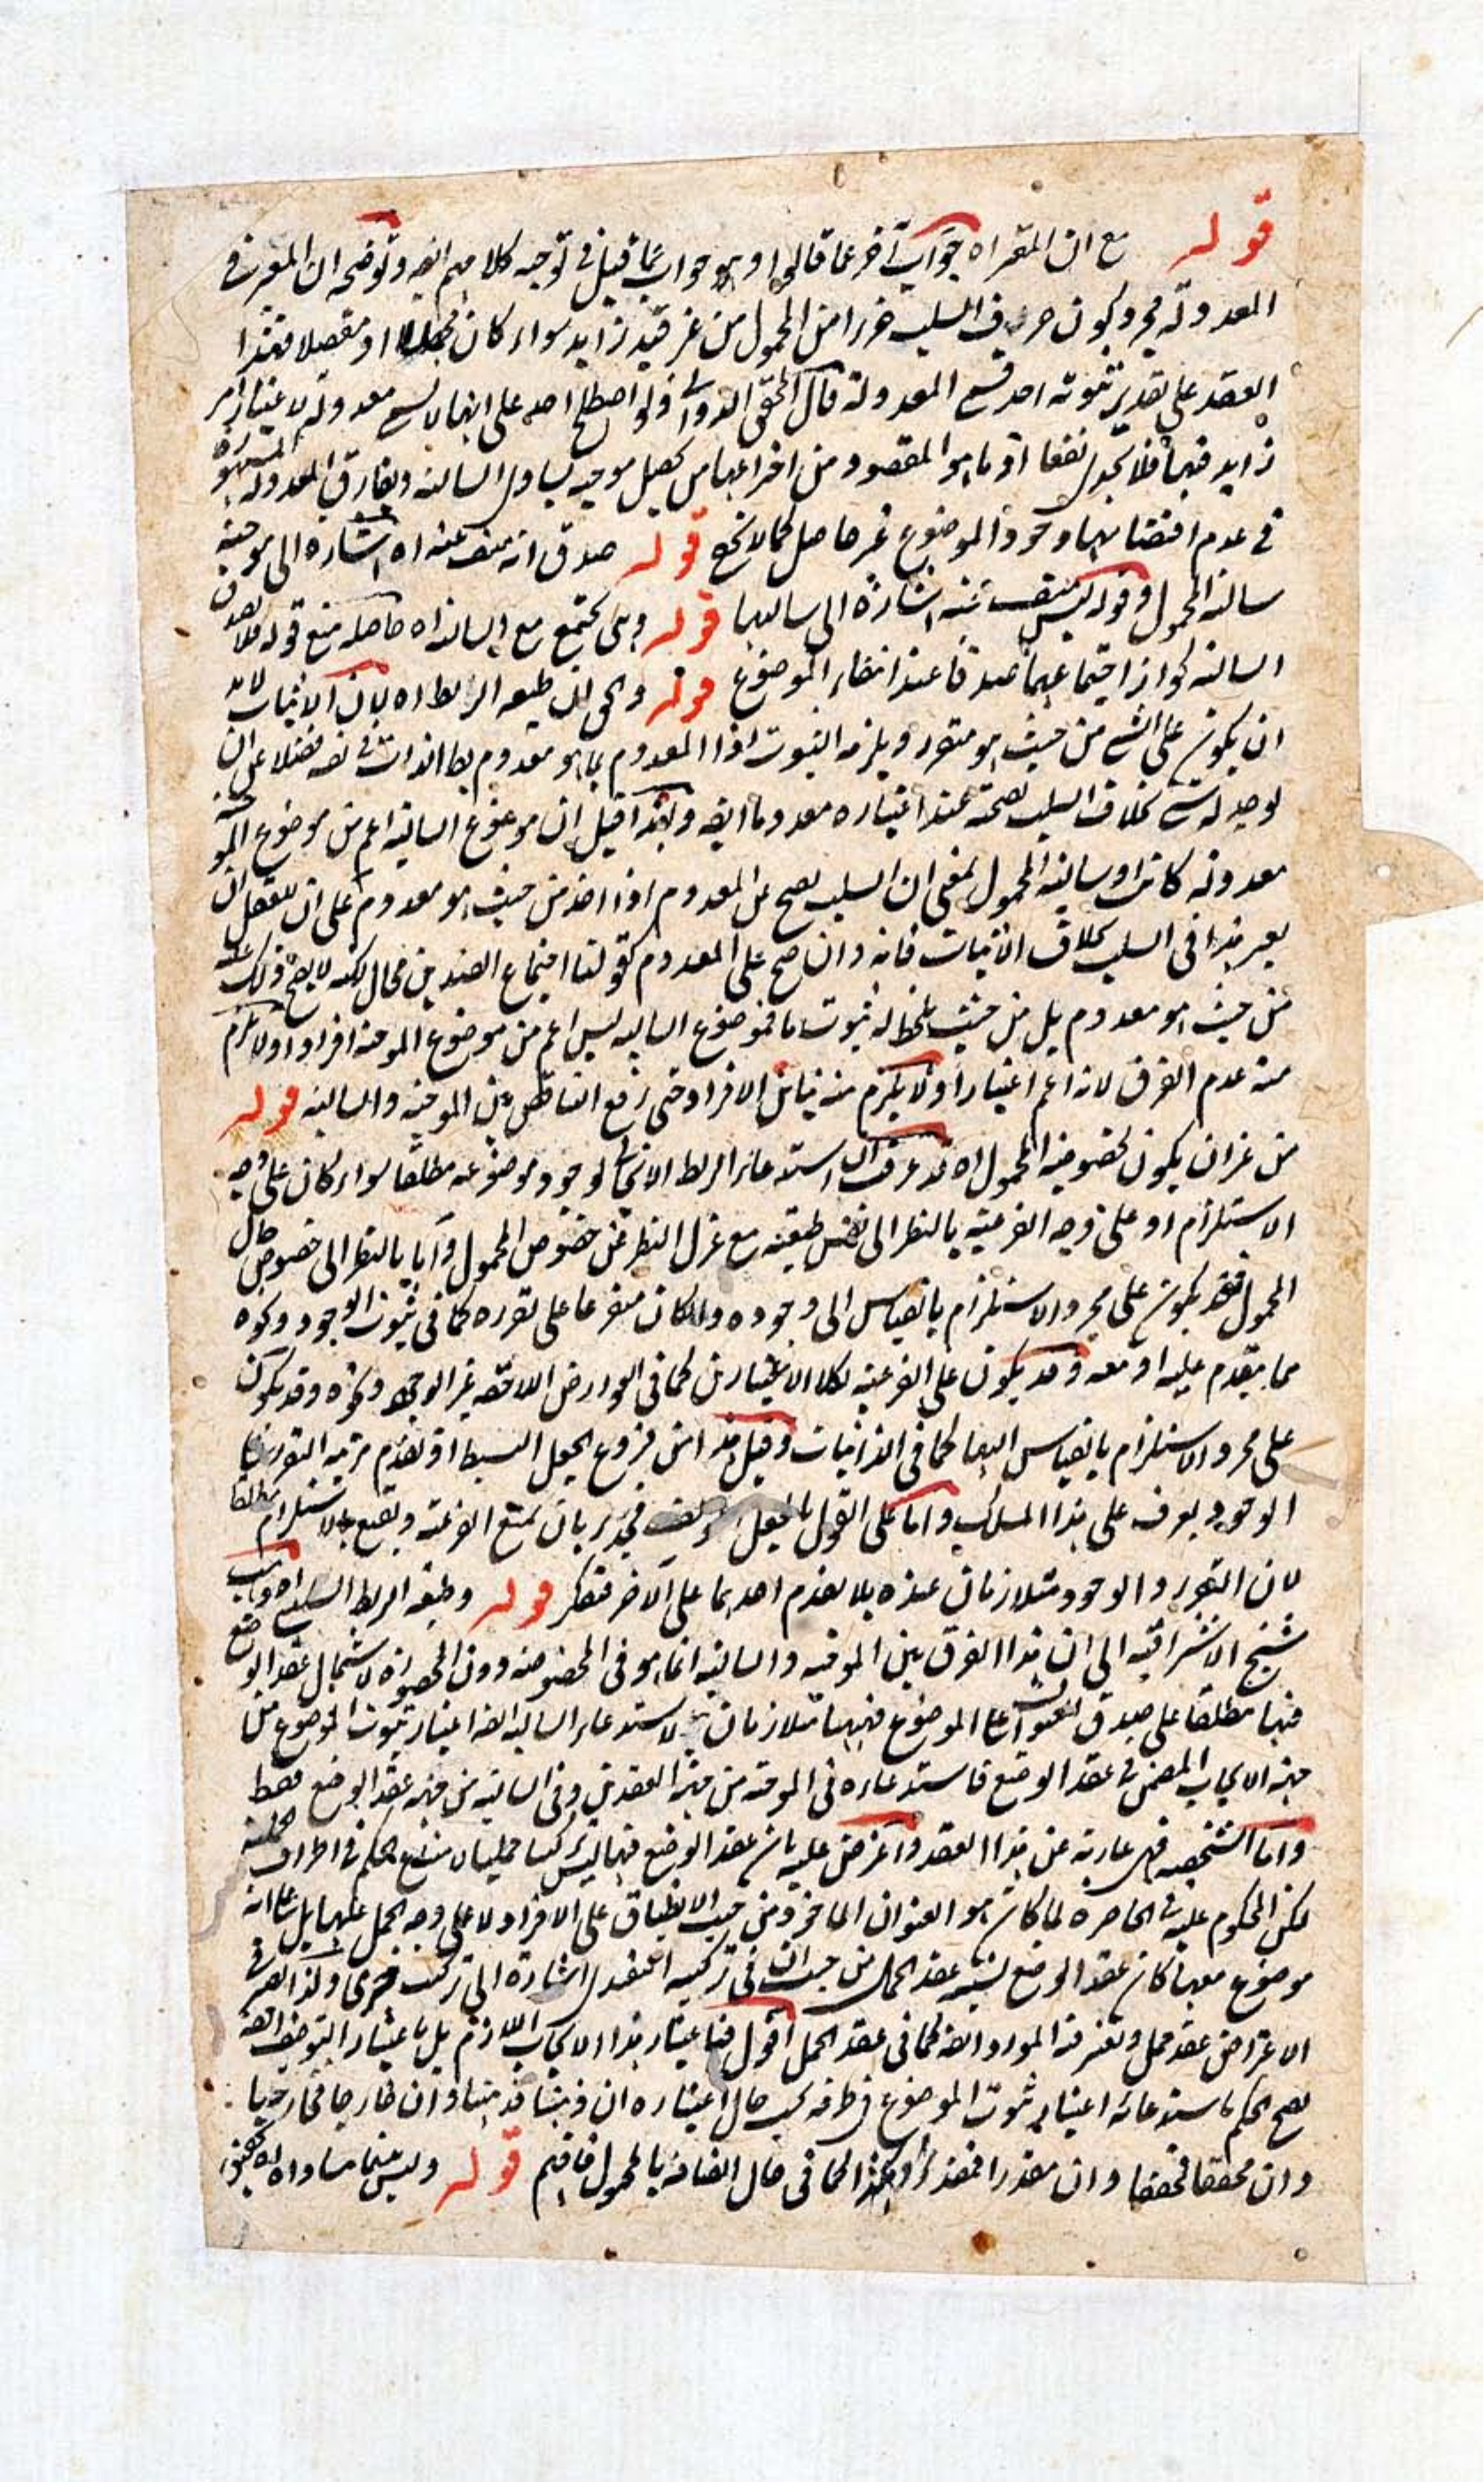 قوله مع ان المقرر اه جواب آخر عما قالوا وهو جواب عما قيل في توجيه كلامهم ايضا وتوضيحه ان المعتبر في
المعدولة مجرد كون حرف السلب جزءا من المحمول من غير قيد زايد سواء كان مجملا او مفصلا فهذا
العقد على تقدير ثبوته احد قسمي المعدولة قال المحقق الدواني ولو اصطلح احد على انها لا تسمى معدولة لاعتبار امر
زايد فيها فلا يجدي نفعا اذ ما هو المقصود من اختراعها من تحصيل موجبة يساوي السالبة ويفارق المعدولة المشهورة
في عدم اقتضائها وجود الموضوع غير حاصل كما لا يخفى قوله صدق انه منتف عنه اه اشارة الى موجبة
سالبة المحمول وقوله ليس منتف عنه اشارة الى سالبها قوله وهى تجتمع مع السالبة اه حاصله منع قوله فلا يصدق
السالبة لجواز اجتماعهما صدقا عند انتفاء الموضوع قوله والحق ان طبيعة الربط اه لان الاثبات لا بد
ان يكون على الشي من حيث هو متقرر ويلزمه الثبوت اذ المعدوم بما هو معدوم بط الذات في نفسه فضلا عن ان
يوجد له شي بخلاف السلب لصحته عند اعتباره معدوما ايضا ولهذا قيل ان موضوع السالبة اعم من موضوع الموجبة
معدولة كانت او سالبة المحمول بمعنى ان السلب يصح عن المعدوم اذا اخذ من حيث هو معدوم على ان للعقل ان
يعتبر هذا في السلب بخلاف الاثبات فانه وان صح على المعدوم كقولنا اجتماع الضدين محال لكنه لا يصح ذلك عليه
من حيث هو معدوم بل من حيث يلحظ له ثبوت ما فموضوع السالبة ليس اعم من موضوع الموجبة افرادا ولا يلزم
منه عدم الفرق لانه اعم اعتبارا ولا يلزم منه تباين الافراد حتى رفع التناقض بين الموجبة والسالبة قوله
من غير ان يكون لخصوصية المحمول اه قد عرفت ان استدعاء الربط الايجابي لوجود موضوعه مطلقا سواء كان على وجه
الاستلزام او على وجه الفرعية بالنظر الى نفس طبيعته مع عزل النظر عن خصوص المحمول واما بالنظر الى خصوص حال
المحمول فقد يكون على مجرد الاستلزام بالقياس الى وجوده وان كان متفرعا على تقرره كما في ثبوت الوجود ونحوه
مما يتقدم عليه او معه وقد يكون على الفرعية بكلا الاعتبارين كما في العوارض اللاحقة غير الوجود ونحوه وقد يكون
على مجرد الاستلزام بالقياس اليهما كما في الذاتيات وقيل هذا من فروع الجعل البسيط اذ تقدم مرتبة التقرر على
الوجود يعرف على هذا المسلك واما على القول بالجعل المؤلف فجدير بان يمنع الفرعية ويقنع بالاستلزام مطلقا
لان التقرر والوجود متلازمان عنده بلا تقدم احدهما على الآخر فتفكر قوله وطبيعة الربط السلبي اه ذهب
شيخ الاشراقية الى ان هذا الفرق بين الموجبة والسالبة انما هو في الشخصية دون المحصورة لاشتمال عقد الوضع
فيها مطلقا على صدق العنوان على الموضوع فهيهنا متلازمان لاستدعاء السالبة ايضا اعتبار ثبوت الموضوع من
جهة الايجاب المضمن في عقد الوضع فاستدعاءه في الموجبة من جهة العقدين وفي السالبة من جهة عقد الوضع فقط
واما الشخصية فهى عارية عن هذا العقد واعترض عليه بان عقد الوضع فيها ليس تركيبا حمليا لامتناع الحكم في اطراف الحملية
لكن المحكوم عليه في الحاصرة لما كان هو العنوان الماخوذ من حيث الانطباق على الافراد لا على وجه الحمل عليها بل على انه
موضوع معها كان عقد الوضع يشبه عقد الحمل من حيث ان في تركيبه التقييدي اشارة الى تركيب خبري ولذا اعتبر في
الاعتراض عقد حمل ويعتبر فيه المورد ايضا كما في عقد الحمل اقول فباعتبار هذا الايجاب اللازم بل باعتبار التوصيف ايضا
يصح الحكم باستدعائه اعتبار ثبوت الموضوع في ظرفه بحسب حال اعتباره ان ذهنا فذهنا وان خارجا فخارجيا
وان محققا فمحققا وان مقدرا فمقدرا وهكذا كما في حال اتصافه بالمحمول فافهم قوله وليس بينهما مساواه اه بمعنى